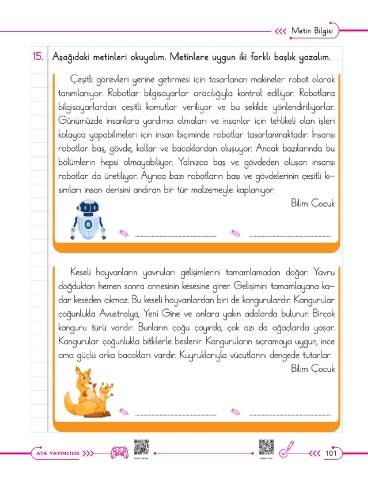 Metin Bilgisi
15. Aşağıdaki metinleri okuyalım. Metinlere uygun iki farklı başlık yazalım.
Çeşitli görevleri yerine getirmesi için tasarlanan makineler robot olarak
tanımlanıyor. Robotlar bilgisayarlar aracılığıyla kontrol ediliyor. Robotlara
bilgisayarlardan çeşitli komutlar veriliyor ve bu şekilde yönlendiriliyorlar.
Günümüzde insanlara yardımcı olmaları ve insanlar için tehlikeli olan işleri
kolayca yapabilmeleri için insan biçiminde robotlar tasarlanmaktadır. İnsansı
robotlar baş, gövde, kollar ve bacaklardan oluşuyor. Ancak bazılarında bu
bölümlerin hepsi olmayabiliyor. Yalnızca baş ve gövdeden oluşan insansı
robotlar da üretiliyor. Ayrıca bazı robotların başı ve gövdelerinin çeşitli kı-
sımları insan derisini andıran bir tür malzemeyle kaplanıyor.
Bilim Çocuk
Keseli hayvanların yavruları gelişimlerini tamamlamadan doğar. Yavru
doğduktan hemen sonra annesinin kesesine girer. Gelişimini tamamlayana ka-
dar keseden çıkmaz. Bu keseli hayvanlardan biri de kangurulardır. Kangurular
çoğunlukla Avustralya, Yeni Gine ve onlara yakın adalarda bulunur. Birçok
kanguru türü vardır. Bunların çoğu çayırda, çok azı da ağaçlarda yaşar.
Kangurular çoğunlukla bitkilerle beslenir. Kanguruların sıçramaya uygun, ince
ama güçlü arka bacakları vardır. Kuyruklarıyla vücutlarını dengede tutarlar.
Bilim Çocuk
ATA YAYINCILIK
101